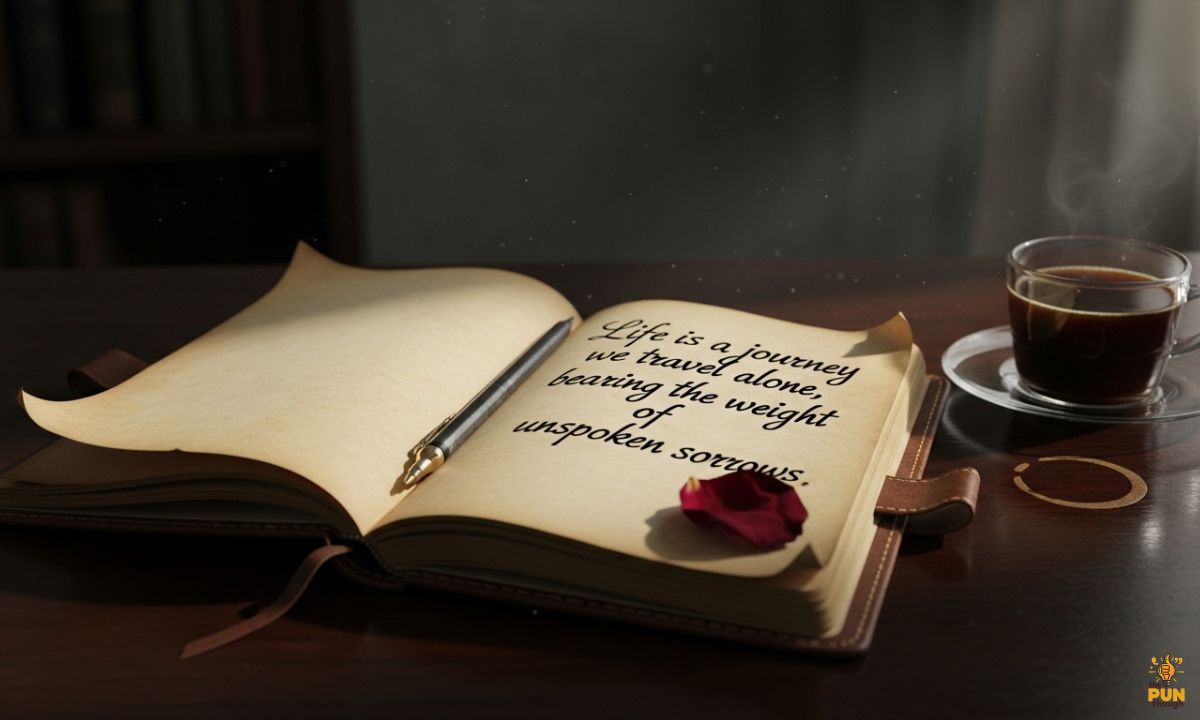 Life is a journey
we travel alone,
bearing the weight
of
unspoken sorrows.
the
PUN
though